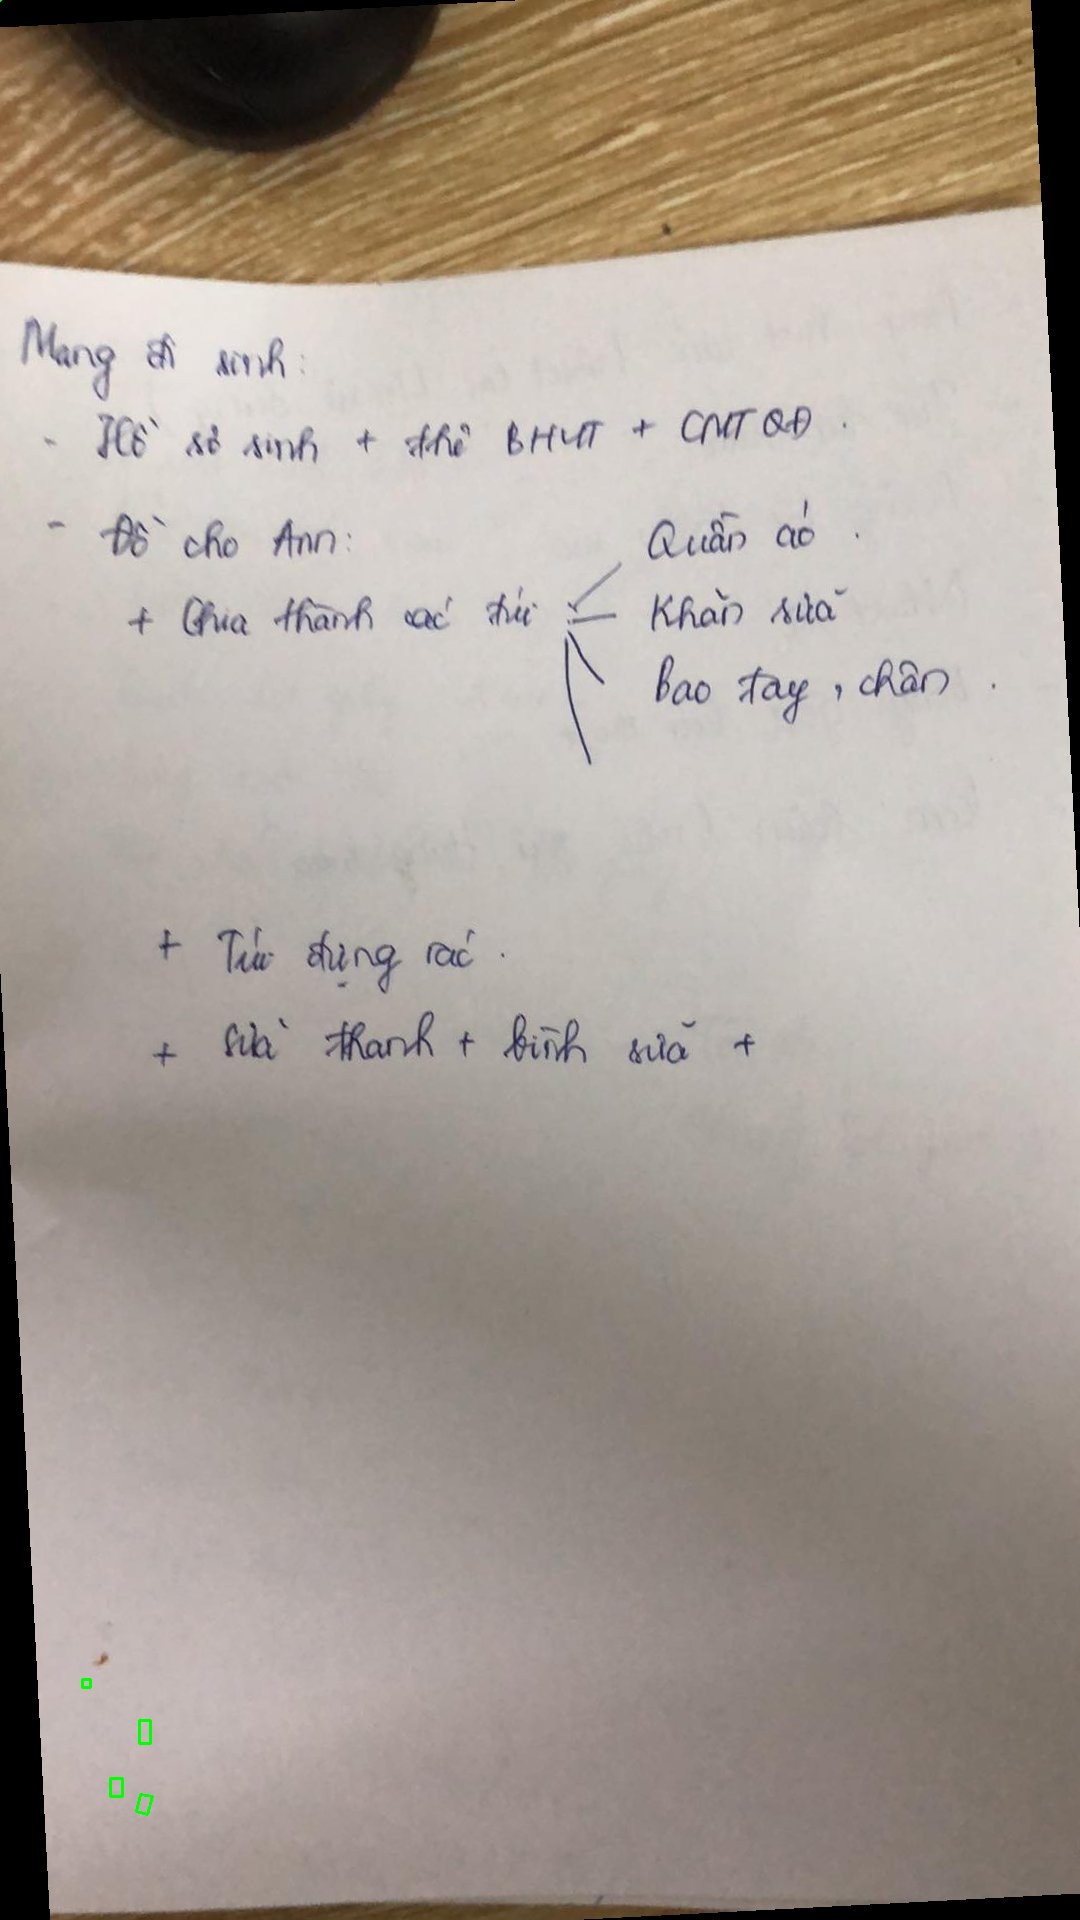 Mang đi sinh:
- Hồ sơ sinh + thẻ BHYT + CMTQĐ.
- Đồ cho Ann:
+ Chia thành các túi
Quần áo.
Khăn sữa
Bao tay, chân.
+ Túi đựng rác.
+ Sữa thanh + bình sữa +